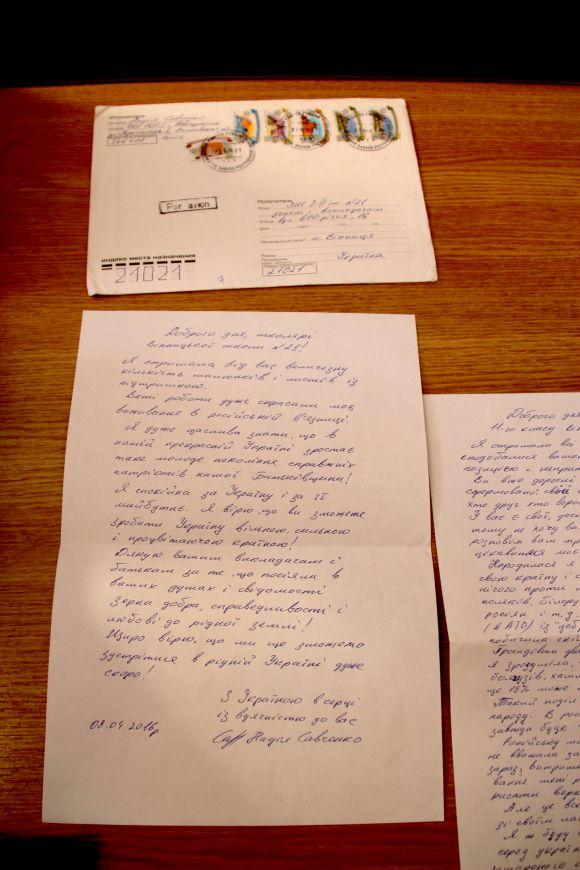 Савченко
Par avion
Получатель
ЗШ I-III ст. N21
вул. 600-річчя, 16
м. Вінниця
Україна
21021
индекс места назначения
21021
Доброго дня, школярі
Вінницької школи N21!
Я отримала від вас величезну
кількість малюнків і листів із
підтримкою.
Ваші роботи дуже скрасили моє
виживання в російській в'язниці.
Я дуже щаслива знати, що в
нашій прекрасній Україні зростає
таке молоде покоління справжніх
патріотів нашої Батьківщини!
Я спокійна за Україну і за її
майбутнє. Я вірю, що ви зможете
зробити Україну вільною, сильною
і процвітаючою країною!
Дякую вашим викладачам і
батькам за те, що посіяли в
ваших душах і свідомості
Зерна добра, справедливості і
любові до рідної землі!
Щиро вірю, що ми ще зможемо
зустрітися в рідній Україні дуже
скоро!
З Україною в серці
із вдячністю до вас
Надія Савченко
08.04.2016р
Доброго дня
11-го класу
Я отримала ва
сподобалися вашою
позицією і
Ви вже дорослі
сформовано: свій
хто друг хто воро
У вас є свої,
тому не хочу ва
розповім вам
цікавиться моє
Народилася я
свою країну і
нічого проти
поляків, білору
росіян і т.д.
(в АТО) із "доб
побачила
Правдивим
я зрозуміла,
ще 19% може
Такий поділ
народу. В рос
завжди буде
Російську мо
не вважала за
зараз, витрати
ване мені
Але це все
зі своїм
Я ж буду
серед україн